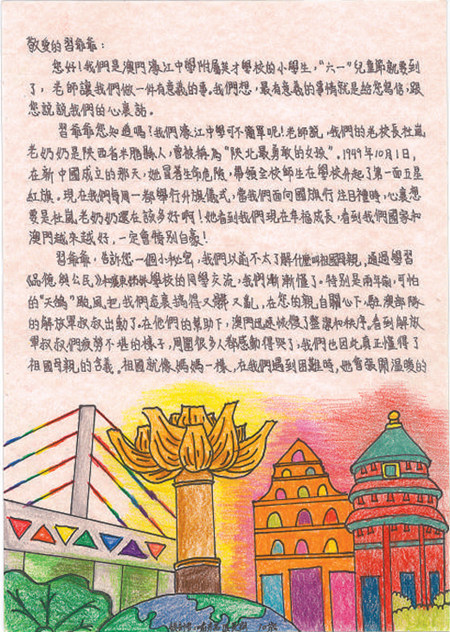 敬愛的習爺爺：
您好！我們是澳門濠江中學附屬英才學校的小學生，“六一”兒童節就要到
了，老師讓我們做一件有意義的事。我們想，最有意義的事情就是給您寫信，跟
您說說我們的心裏話。
習爺爺您知道嗎？我們濠江中學可不簡單呢！老師說，我們的老校長杜嵐
老奶奶是陝西省米脂縣人，曾被稱為“陝北最勇敢的女孩”。1949年10月1日，
在新中國成立的那天，她冒着生命危險，帶領全校師生在學校升起了第一面五星
紅旗。現在我們每周一都舉行升旗儀式，當我們面向國旗行注目禮時，心裏想
要是杜嵐老奶奶還在該多好啊！她看到我們現在幸福成長，看到我們國家和
澳門越來越好，一定會特別自豪！
習爺爺，告訴您一個小秘密，我們以前不太了解什麼叫祖國母親，通過學習
《品德與公民》學校的同學交流，我們漸漸懂了。特別是兩年前，可怕
的“天鴿”颱風把我們家裏搞得又髒又亂，在您的親自關心下，駐澳部隊
的解放軍叔叔出動了。在他們的幫助下，澳門迅速恢復了整潔和秩序。看到解放
軍叔叔們疲勞不堪的樣子，周圍很多人都感動得哭了；我們也因此真正懂得了
祖國母親的含義。祖國就像媽媽一樣，在我們遇到困難時，她會張開溫暖的